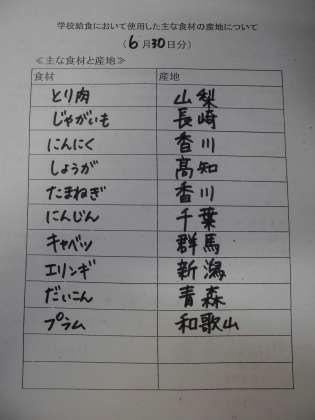 学校給食において使用した主な食材の産地について
(6月30日分)
≪主な食材と産地≫
食材 産地
とり肉 山梨
じゃがいも 長崎
にんにく 香川
しょうが 高知
たまねぎ 香川
にんじん 千葉
キャベツ 群馬
エリンギ 新潟
だいこん 青森
プラム 和歌山